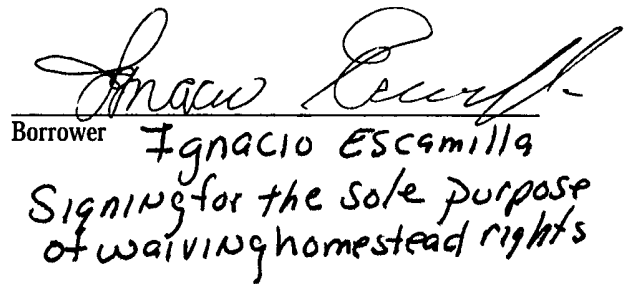 Ignacio Escamilla
Borrower Ignacio Escamilla
Signing for the sole purpose
of waiving homestead rights